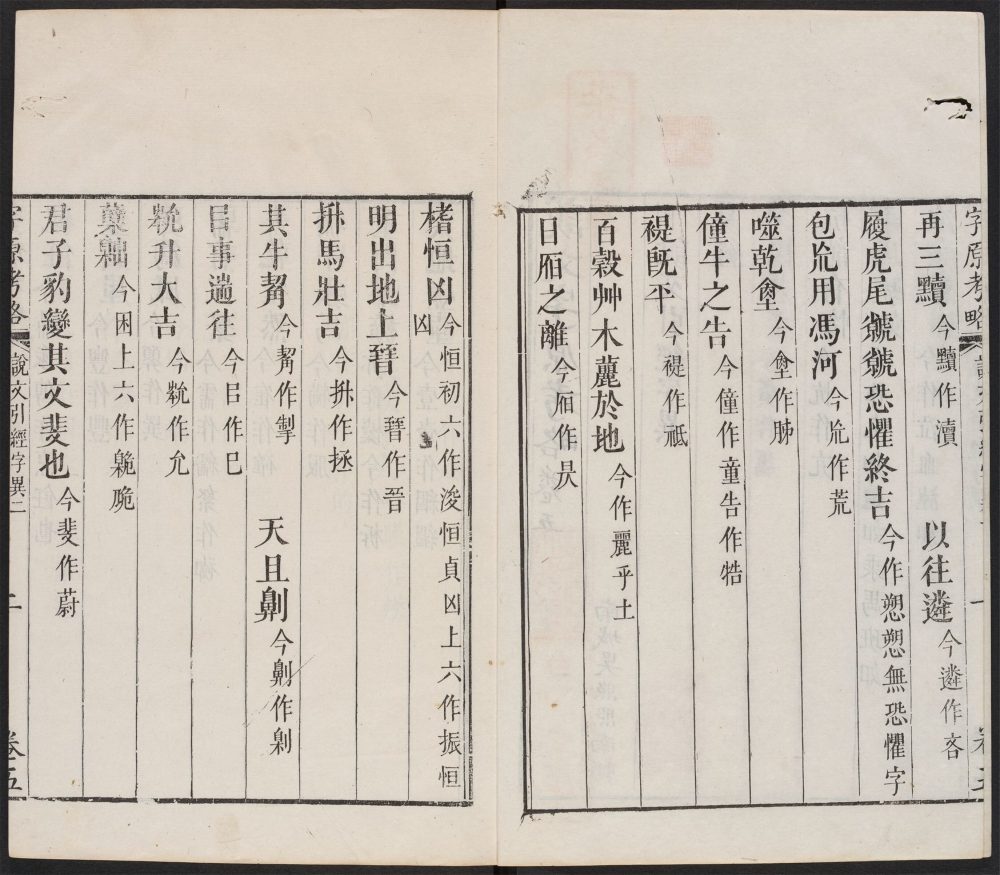 字原考略
再三黷今黷作瀆 以往遴今遴作吝
履虎尾虩虩恐懼終吉今作愬愬無恐懼字
包巟用馮河今巟作荒
噬乾𦞤今𦞤作胏
僮牛之告今僮作童告作牿
禔旣平今禔作祗
百穀艸木䕻於地今作麗乎土
日㕻之離今㕻作昃
榰恒凶今恒初六作浚恒貞凶上六作振恒凶
明出地上㬜今㬜作晉
拼馬壯吉今拼作拯
其牛觢今觢作掣 天且劓今劓作劓
㠯事遄往今㠯作巳
𡴞升大吉今𡴞作允
今困上六作臲卼
君子豹變其文斐也今斐作蔚
字原考略 說文引經字異二 二 卷五